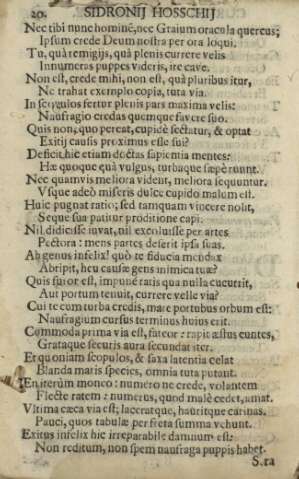 20. SIDRONII HOSSCHII
Nec tibi nunc hominē, nec Graium oracula quercus;
Ipsum crede Deum nostra per ora loqui.
Tu, quà remigijs, quà plenis currere velis
Innumeras puppes videris, ire cave.
Non est, crede mihi, non est, quà pluribus itur,
Ne trahat exemplo copia, tuta via.
In scopulos fertur plenis pars maxima velis:
Naufragio credas quemque favere suo.
Quis non, quo pereat, cupidè sectatur, & optat
Exitij causis proximus esse sui?
Deficit hìc etiam doctas sapientia mentes:
Hæ quoque quà vulgus, turbaque sæpe ruunt.
Nec quamvis meliora vident, meliora sequuntur.
Vsque adeò miseris dulce cupido malum est.
Huic pugnat ratio; sed tamquam vincere nolit,
Seque sua patitur proditione capi.
Nil didicisse iuvat, nil excoluisse per artes
Pectora: mens partes deserit ipsa suas.
Ah genus infelix! quò te fiducia mendax
Abripit, heu causæ gens inimica tuæ?
Quis furor est, impunè ratis qua nulla cucurrit,
Aut portum tenuit, currere velle via?
Cui te cum turba credis, mare portubus orbum est:
Naufragium cursus terminus huius erit.
Commoda prima via est, fateor: rapit æstus euntes,
Grataque securis aura secundat iter.
Et quoniam scopulos, & saxa latentia celat
Blanda maris species, omnia tuta putant.
En iterùm moneo: numero ne crede, volantem
Flecte ratem: numerus, quod malè cedet, amat.
Vltima cæca via est; laceratque, hauritque carinas.
Pauci, quos tabulæ per freta summa vehunt.
Exitus infelix hic irreparabile damnum est:
Non reditum, non spem naufraga puppis habet.